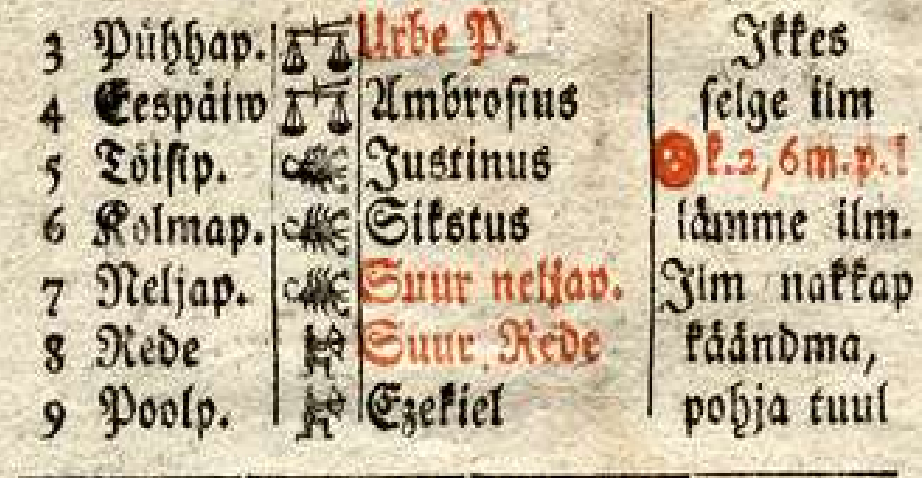 3 Pühhap. Urbe P. Ikkes
4 Eespäiw Ambrosius selge ilm
5 Töisip. Justinus k. 2, 6 m. p. l
6 Kolmap. Sikstus lämme ilm.
7 Neljap. Suur neljap. Ilm nakkap
8 Rede Suur Rede käändma,
9 Poolp. Ezekiel pohja tuul